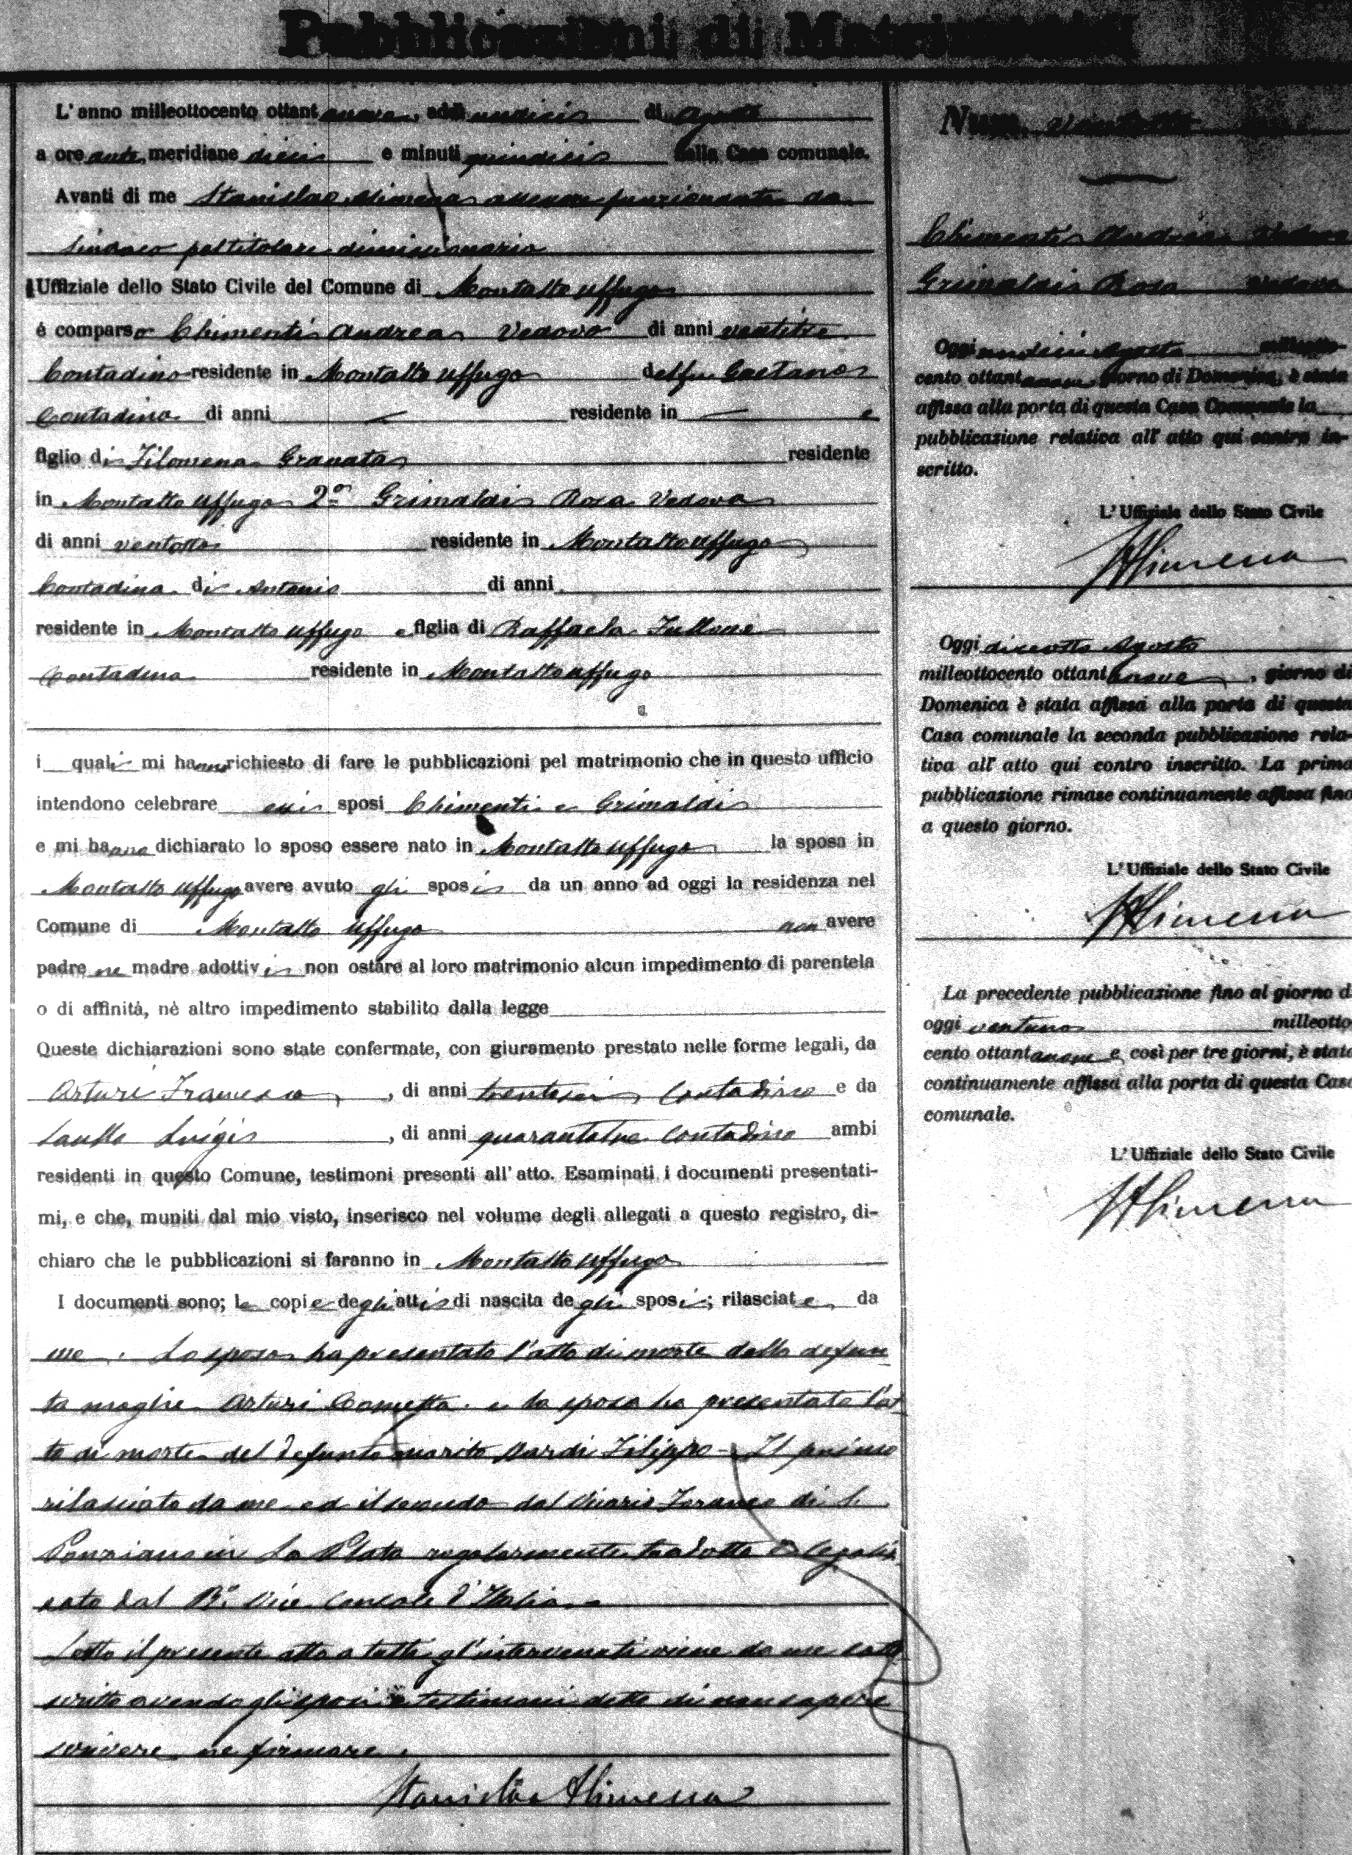 Pubblicazioni di Matrimonii
L'anno milleottocento ottant anove, addì undici di Agosto
a ore ante meridiane dieci e minuti quindici nella Casa comunale.
Avanti di me Stanislao Alimena assessore funzionante da
Sindaco pel titolare dimissionario
Uffiziale dello Stato Civile del Comune di Montalto Uffugo
è comparso Chimenti Andrea Vedovo di anni ventitre
Contadino residente in Montalto Uffugo del fu Gaetano
Contadino di anni — residente in — e
figlio di Filomena Granata residente
in Montalto Uffugo 2º Grimaldi Rosa Vedova
di anni ventotto residente in Montalto Uffugo
Contadina di Antonio di anni
residente in Montalto Uffugo e figlia di Raffaela Fullone
Contadina residente in Montalto Uffugo
i quali mi hanno richiesto di fare le pubblicazioni pel matrimonio che in questo ufficio
intendono celebrare essi sposi Chimenti e Grimaldi
e mi hanno dichiarato lo sposo essere nato in Montalto Uffugo la sposa in
Montalto Uffugo avere avuto gli sposi da un anno ad oggi la residenza nel
Comune di Montalto Uffugo non avere
padre ne madre adottivi non ostare al loro matrimonio alcun impedimento di parentela
o di affinità, nè altro impedimento stabilito dalla legge
Queste dichiarazioni sono state confermate, con giuramento prestato nelle forme legali, da
Arturi Francesco, di anni trentasei Contadino e da
Luigi, di anni quarantatre Contadino ambi
residenti in questo Comune, testimoni presenti all'atto. Esaminati i documenti presentati-
mi, e che, muniti dal mio visto, inserisco nel volume degli allegati a questo registro, di-
chiaro che le pubblicazioni si faranno in Montalto Uffugo
I documenti sono; le copie degli atti di nascita degli sposi; rilasciate da
me. Lo sposo ha presentato l'atto di morte della defun
ta moglie Arturi e la sposa ha presentato l'at
to di morte del defunto marito Nardi Filippo - Il primo
rilasciato da me ed il secondo dal Vicario Foraneo di S.
Ponziano in La Plata regolarmente tradotto e legaliz
zato dal Rº Vice Console d'Italia
Letto il presente atto a tutti gl'intervenuti viene da me sotto
scritto avendo gli sposi e testimoni detto di non sapere
scrivere ne firmare.
Stanislao Alimena
Num. ventotto
Chimenti Andrea Vedovo
Grimaldi Rosa Vedova
Oggi undici Agosto milleotto-
cento ottant anove giorno di Domenica, è stata
affissa alla porta di questa Casa Comunale la
pubblicazione relativa all'atto qui contro in-
scritto.
L'Uffiziale dello Stato Civile
S Alimena
Oggi diciotto Agosto
milleottocento ottant anove, giorno di
Domenica è stata affissa alla porta di questa
Casa comunale la seconda pubblicazione rela-
tiva all'atto qui contro inscritto. La prima
pubblicazione rimase continuamente affissa fino
a questo giorno.
L'Uffiziale dello Stato Civile
S Alimena
La precedente pubblicazione fino al giorno d
oggi ventuno milleotto
cento ottant anove e, così per tre giorni, è stata
continuamente affissa alla porta di questa Casa
comunale.
L'Uffiziale dello Stato Civile
S Alimena